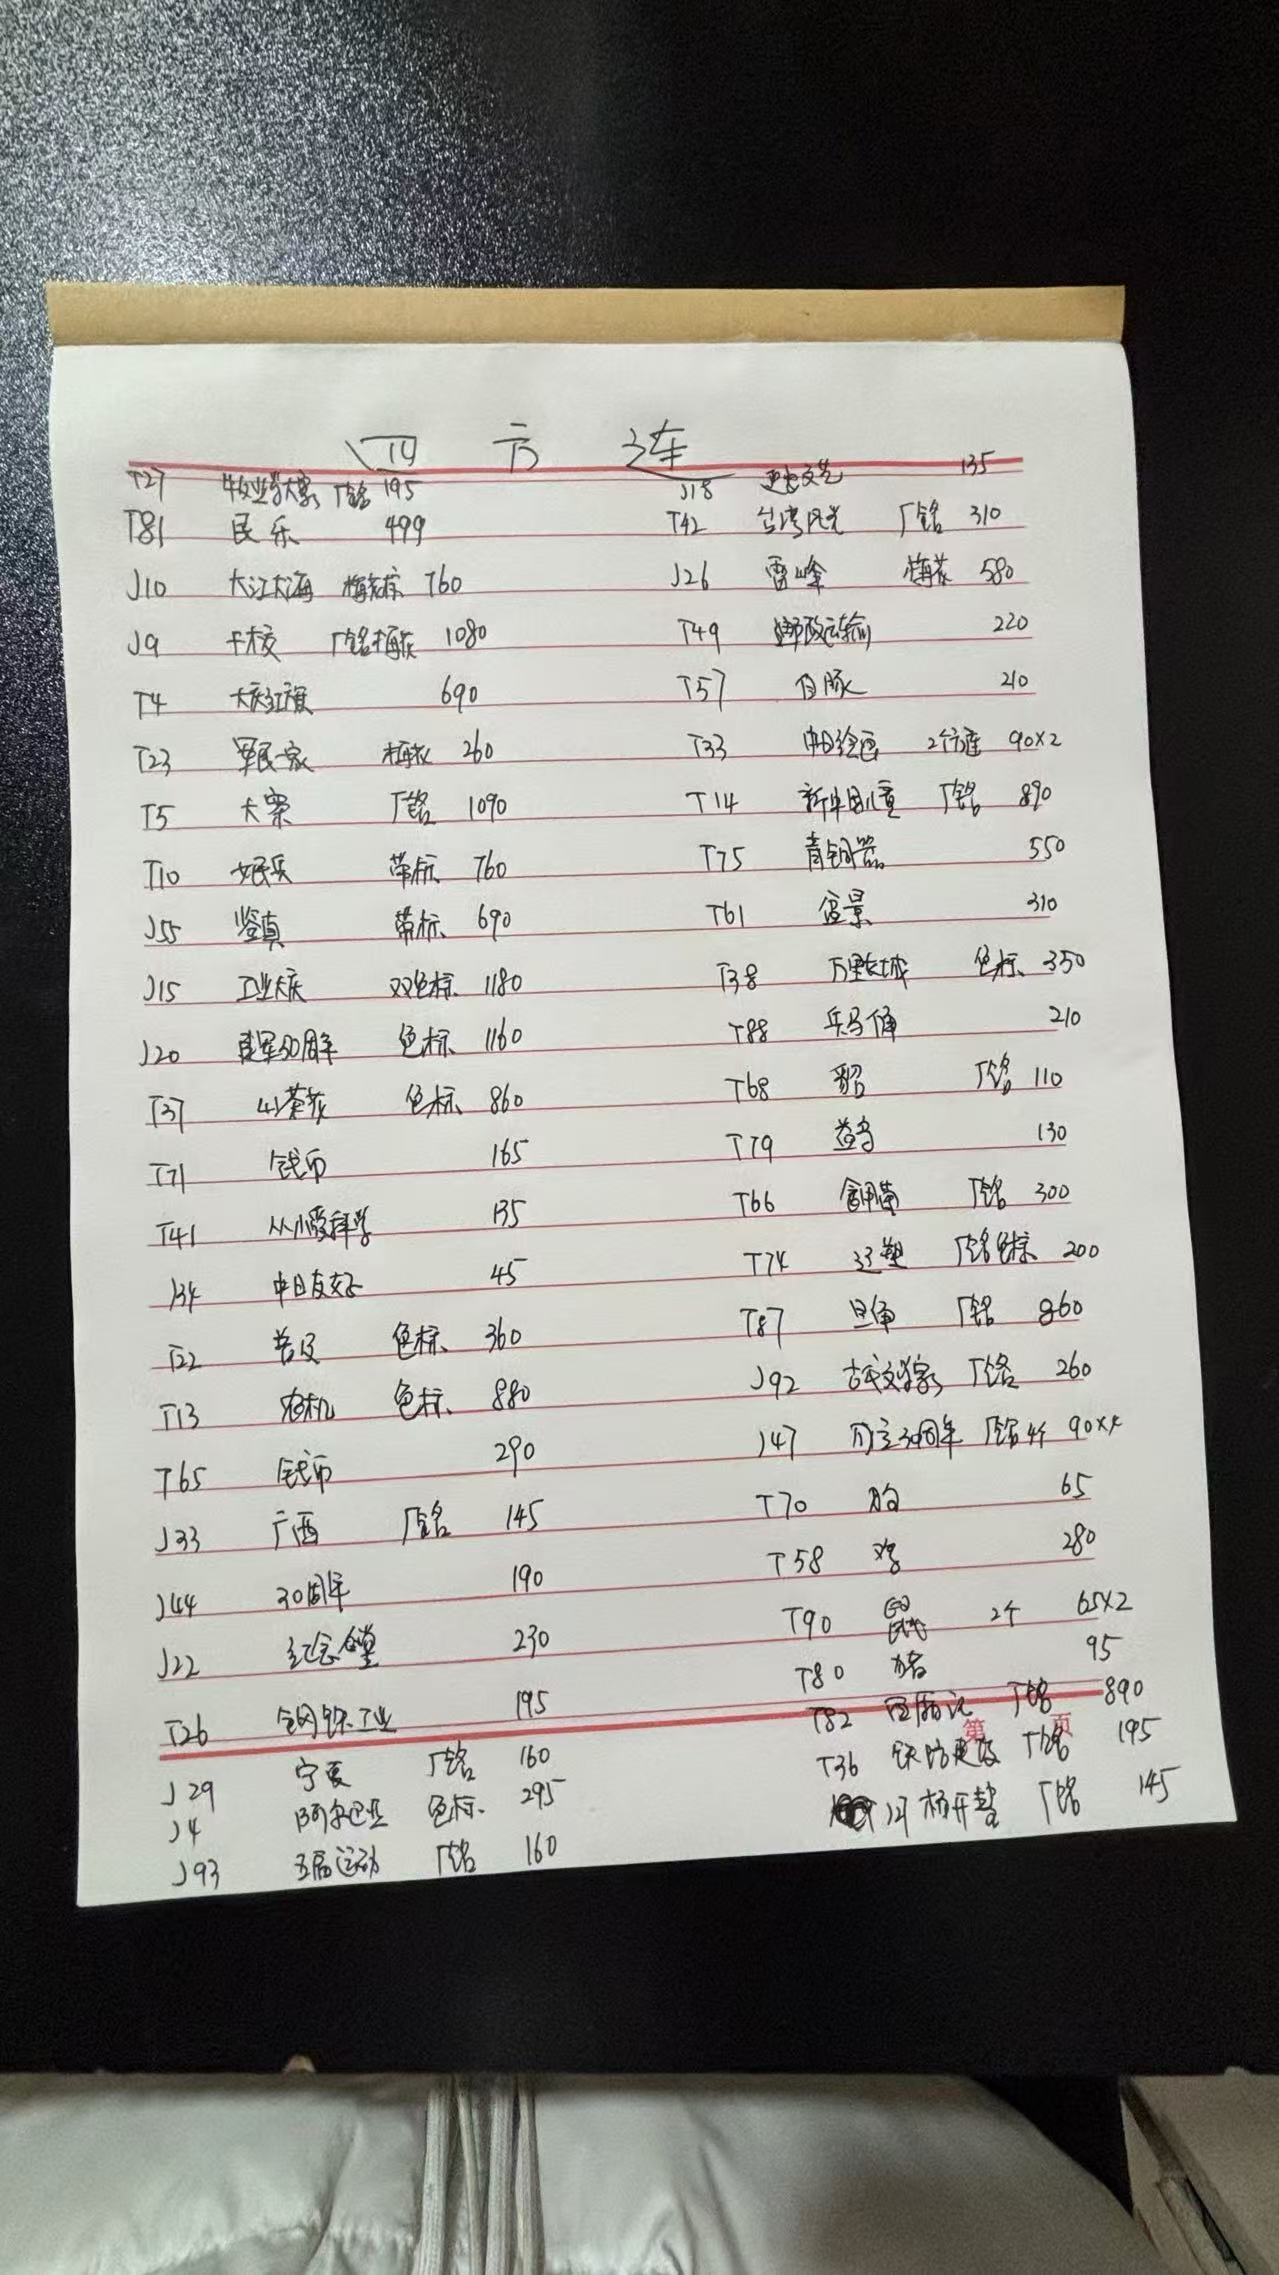 四方连
T27 牧业学大寨 厂铭 195
T81 民乐 499
J10 大江大海 梅花标 760
J9 干校 厂铭梅花 1080
T4 大庆红旗 690
T23 军民一家 梅花 260
T5 大寨 厂铭 1090
T10 女民兵 带标 760
J55 鉴真 带标 690
J15 工业大庆 双色标 1180
J20 建军50周年 色标 1160
T37 山茶花 色标 860
T71 钱币 165
T41 从小爱科学 135
J34 中日友好 45
T22 普及 色标 360
T13 农机 色标 880
T65 钱币 290
J33 广西 厂铭 145
J44 30周年 190
J22 纪念堂 230
T26 钢铁工业 195
J29 宁夏 厂铭 160
J4 阿尔巴亚 色标 295
J93 五届运动 厂铭 160
J18 延安文艺 135
T42 台湾风光 厂铭 310
J26 雷峰 梅花 580
T49 邮政运输 220
T57 白豚 210
T33 中日绘画 2个方连 90×2
T14 新中国儿童 厂铭 890
T75 青铜器 550
T61 盆景 310
T38 万里长城 色标 350
T88 兵马俑 210
T68 厂铭 110
T79 益鸟 130
T66 厂铭 300
T74 辽塑 厂铭色标 200
T87 旦角 厂铭 860
J92 古代文学家 厂铭 260
J47 30周年 厂铭 4个 90×4
T70 狗 65
T58 鸡 280
T90 鼠 2个 65×2
T80 猪 95
T82 西厢记 厂铭 890
第 页
T36 铁路建设 厂铭 195
杨开慧 厂铭 145